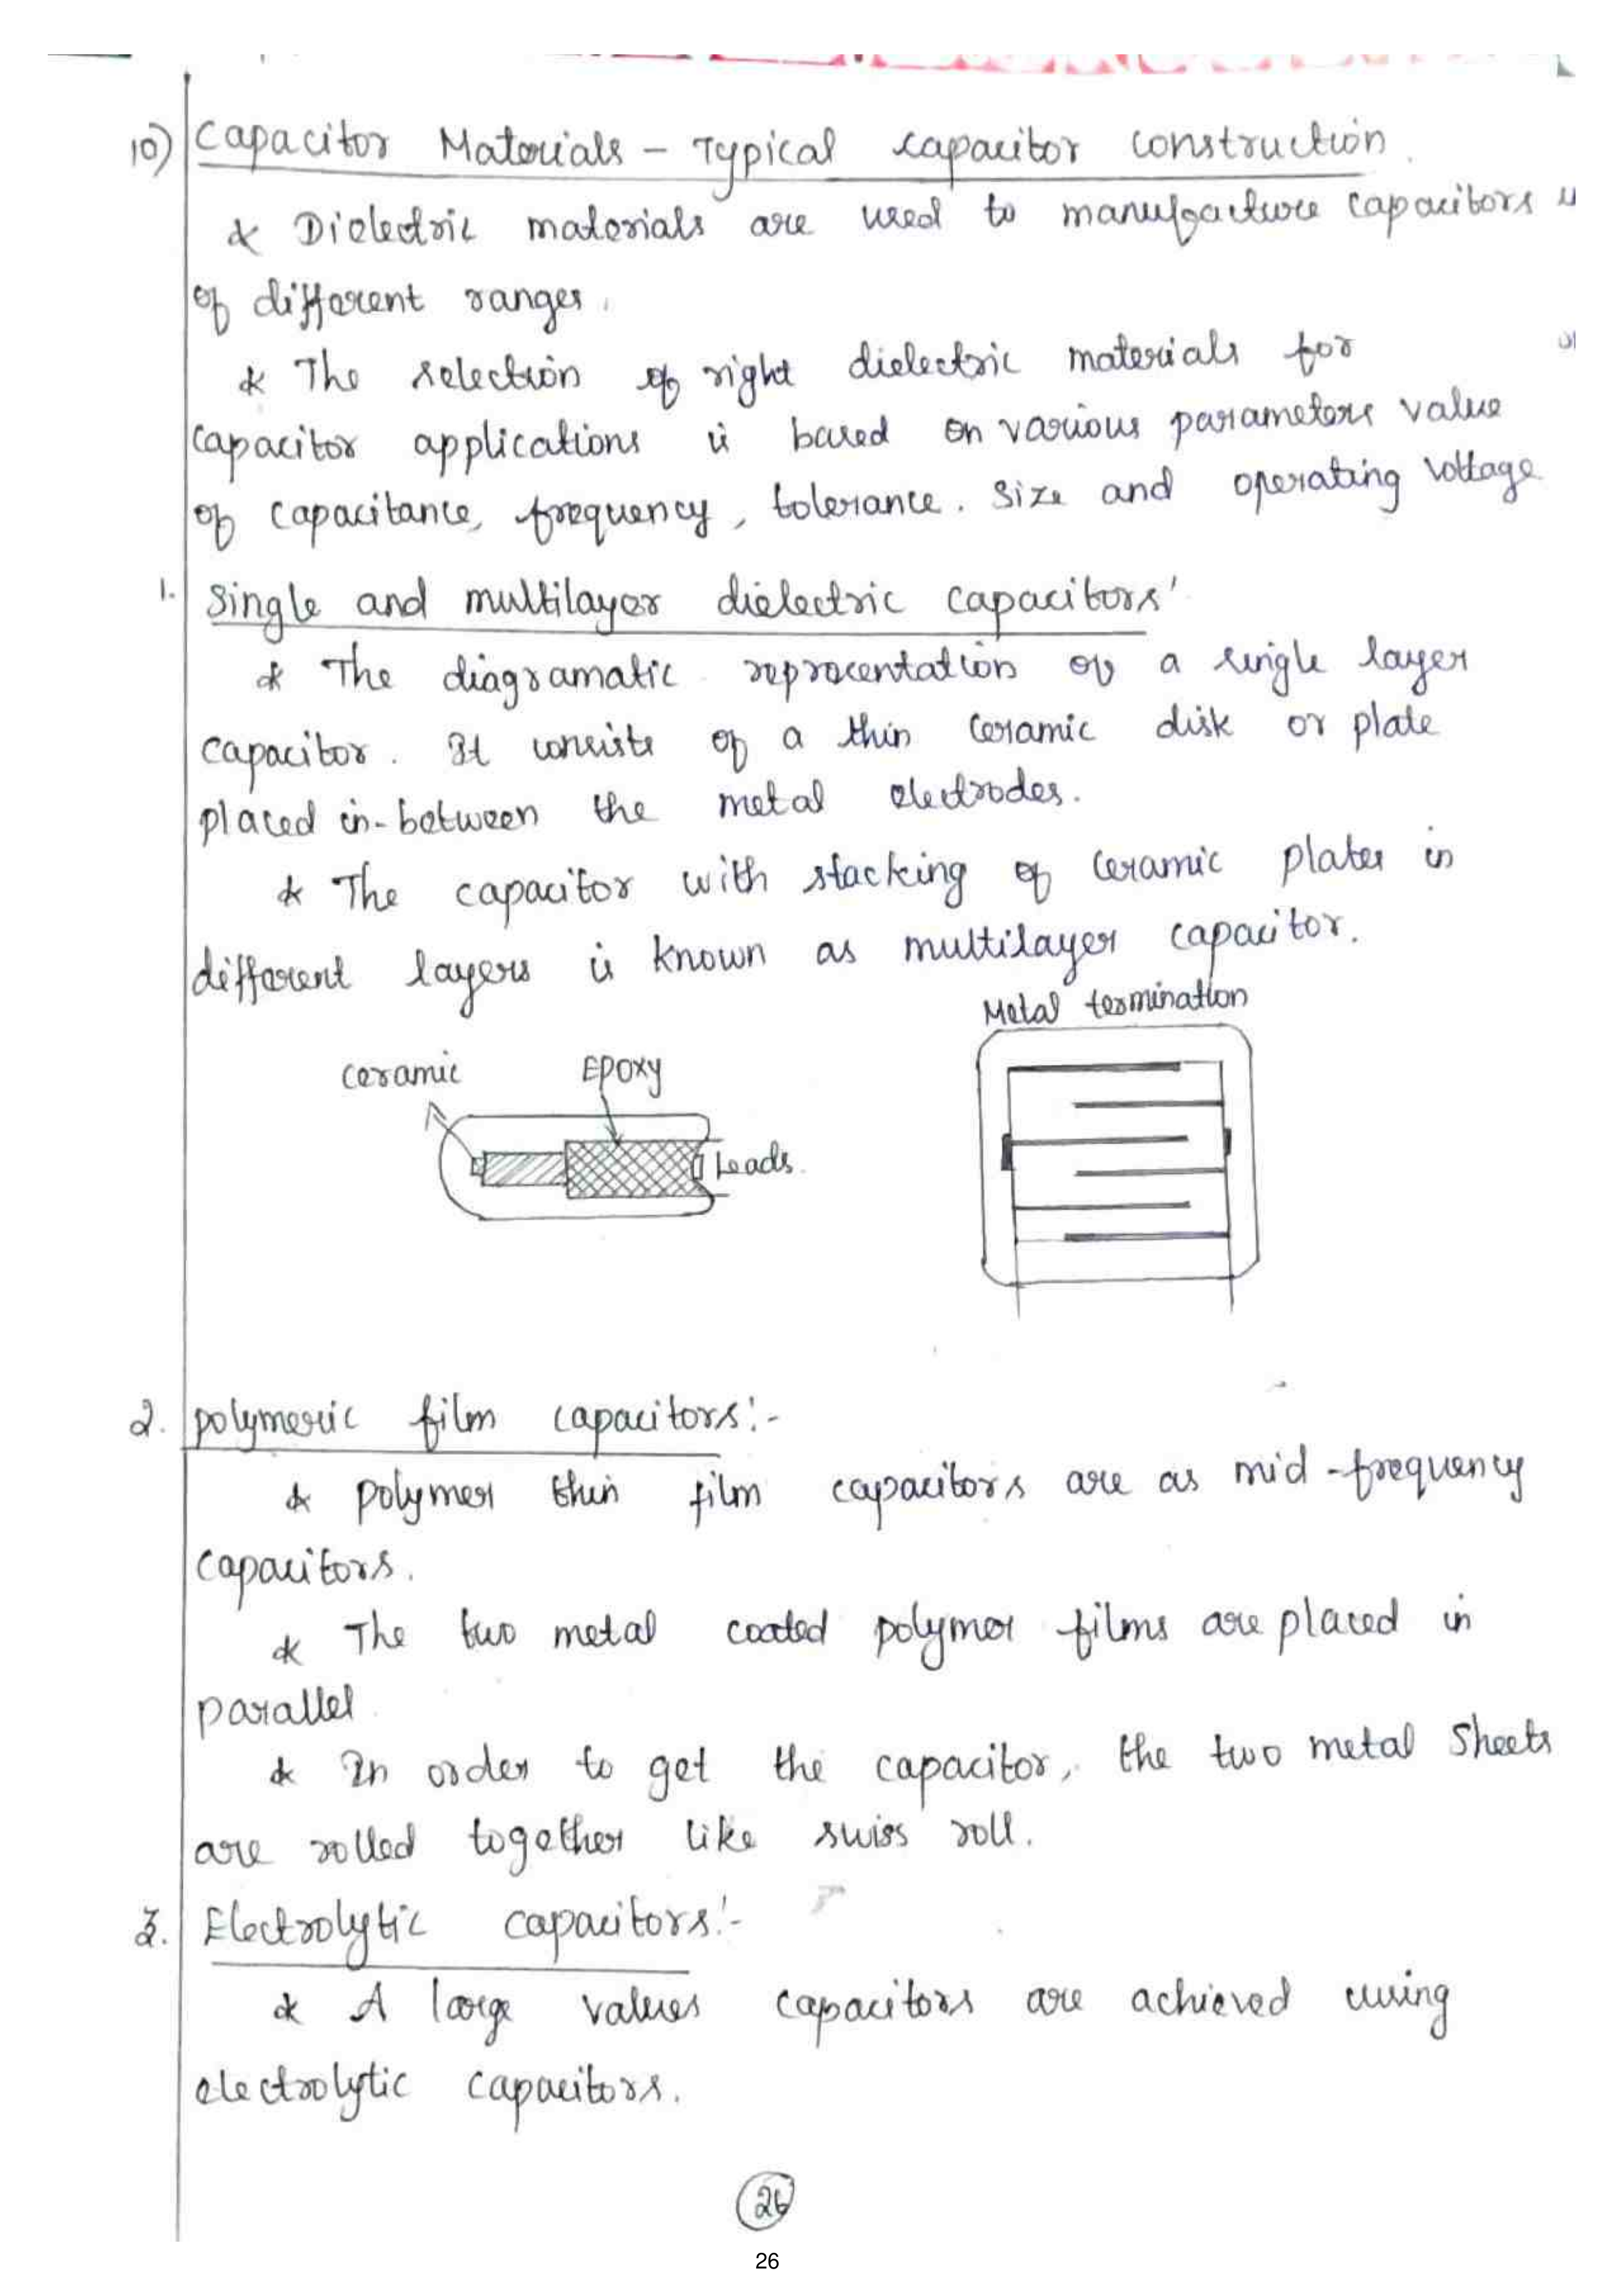 10) Capacitor Materials - Typical capacitor construction.
* Dielectric materials are used to manufacture capacitors
of different ranges.
* The selection of right dielectric materials for
capacitor applications is based on various parameters value
of capacitance, frequency, tolerance. Size and operating voltage
1. Single and multilayer dielectric capacitors'
* The diagramatic reprocentation of a single layer
capacitor. It consists of a thin ceramic disk or plate
placed in-between the metal electrodes.
* The capacitor with stacking of ceramic plates in
different layers is known as multilayer capacitor.
Metal termination
ceramic EPoxy
Leads.
2. polymeric film capacitors:-
* polymer thin film capacitors are as mid-frequency
capacitors.
* The two metal coated polymer films are placed in
parallel.
* In order to get the capacitor, the two metal Sheets
are rolled together like swiss roll.
3. Electrolytic capacitors:-
* A large values capacitors are achieved using
electrolytic capacitors.
26
26